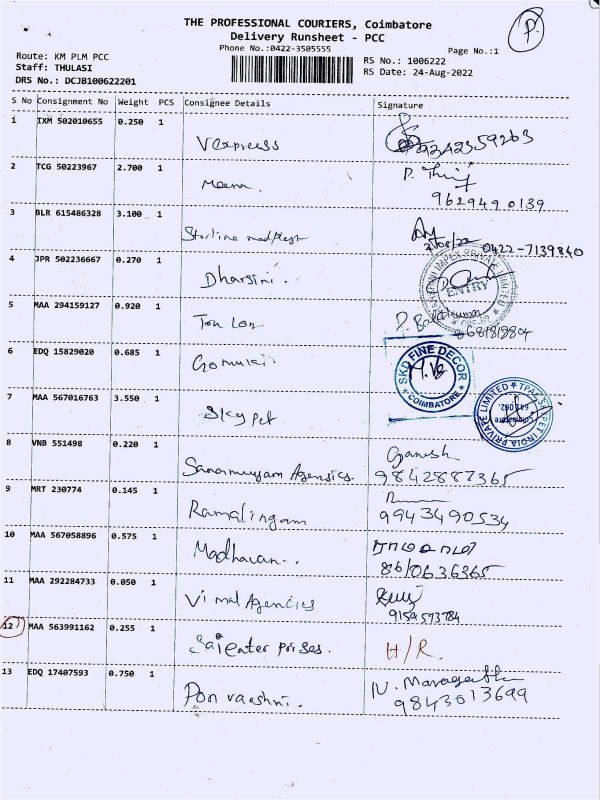 THE PROFESSIONAL COURIERS, Coimbatore
Delivery Runsheet - PCC
Phone No.:0422-3505555
Page No.:1
P.
Route: KM PLM PCC
Staff: THULASI
DRS No.: DCJB100622201
RS No.: 1006222
RS Date: 24-Aug-2022
S No Consignment No Weight PCS Consignee Details Signature
1 IXM 502010655 0.250 1 Vexpreess
2 TCG 50223967 2.700 1 Meena. P.
9629490139
3 BLR 615486328 3.100 1
0422-7139840
4 JPR 502236667 0.270 1 Dharsini.
ENTRY
5 MAA 294159127 0.920 1 P. Balakumar
6 EDQ 15829020 0.685 1 Gomuki
SKD FINE DECOR
COIMBATORE
7 MAA 567016763 3.550 1 Sky pet
INDIA PRIVATE LIMITED
8 VNB 551498 0.220 1 Agensies. Ganesh
9842887365
9 MRT 230774 0.145 1 Ramalingam
9943490534
10 MAA 567058896 0.575 1 Madhavan..
11 MAA 292284733 0.050 1 Vimal Agencies
9159573784
12 MAA 563991162 0.255 1 Sai enter prises. H/R.
13 EDQ 17407593 0.750 1 Pon varshni. N.
9843013699